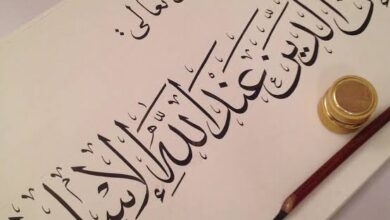 تعالى
الدين عند الله الإسلا